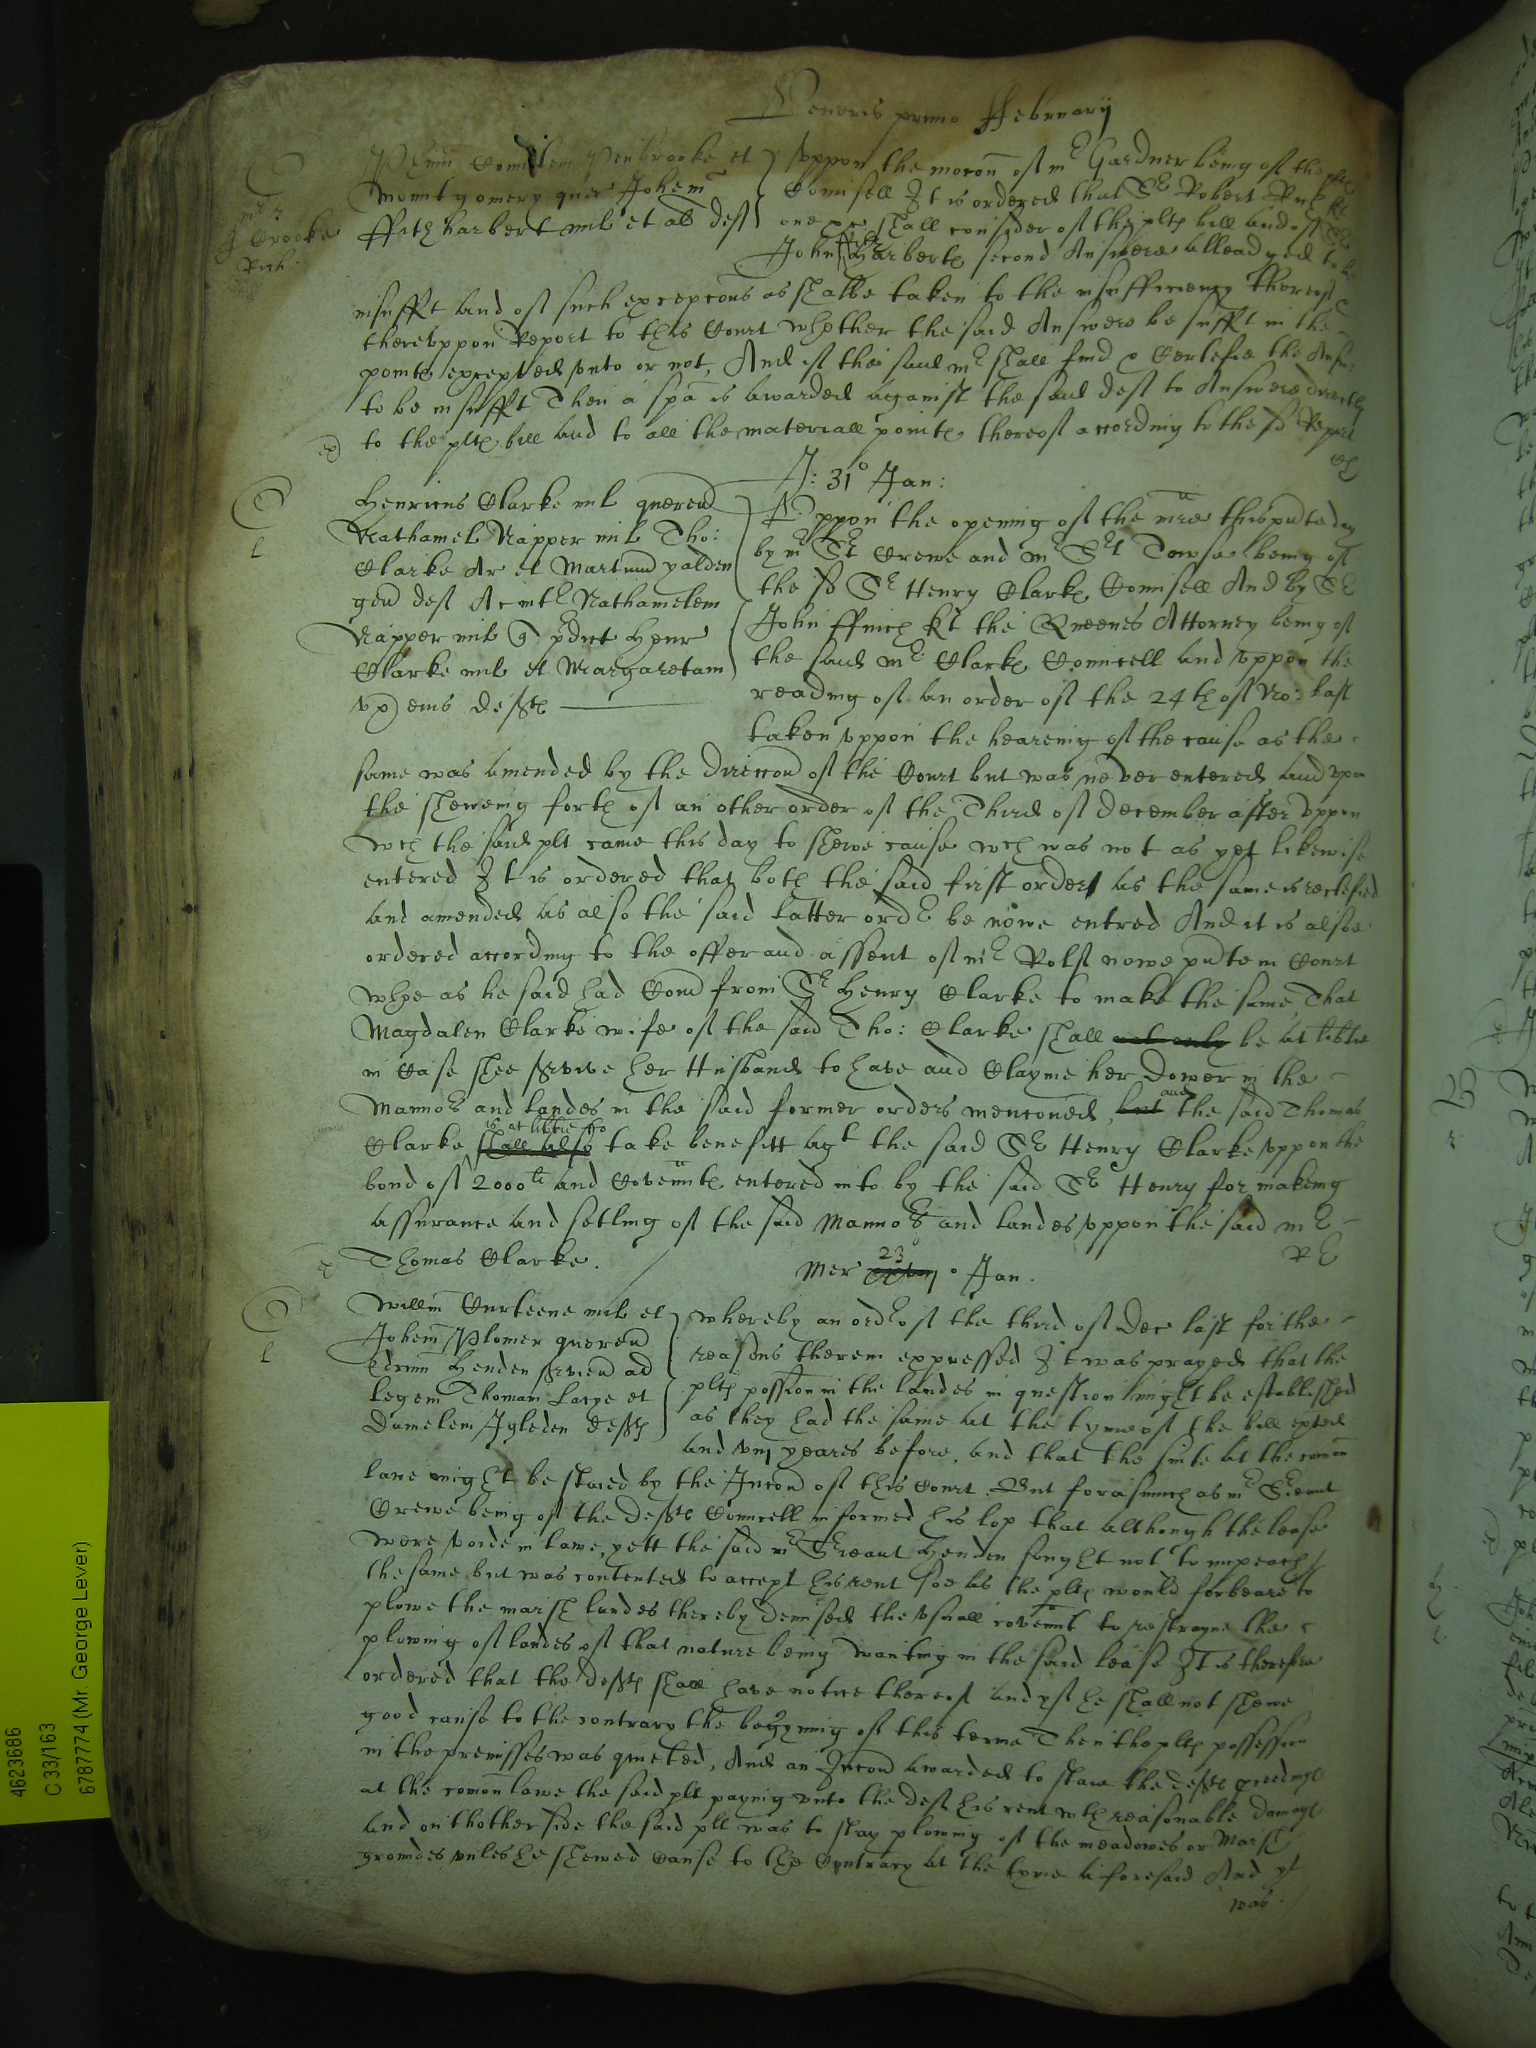 Veneris primo ffebruarij
Phium Comitem Penbrooke et
Mountgomery quer Johem
ffitzharbert mil et al deft
Uppon the mocon of mr Gardner being of the plts
Counsell It is ordered that Sr Robert Rich kt
one shall consider of the plts bill and of Sr
John Harberts second Answere alleadged to be
insufft and of such excepcons as shalbe taken to the insufficiency thereof
thereuppon Report to this Court whether the said Answere be sufft in the
points excepted unto or not, And if the said mr shall find & Certefie the Answ:
to be insufft Then a spa is awarded against the said deft to Answere directly
to the plts bill and to all the materiall points thereof according to the sd Report
J: 31o Jan:
Henricus Clarke mil quereñ
Nathaniel Napper mil Tho:
Clarke Ar et Martin yalden
gen deft Ac int Nathanielem
Napper mil q pdict Henr
Clarke mil et Margaretam
ux eius defts
Uppon the opening of the mre this pnte day
by mr Srt Crewe and mr Srt Towse being of
the sd Sr Henry Clarks Counsell And by Sr
John ffinch kt the Queenes Attorney being of
the said mr Clarks Councell and uppon the
reading of an order of the 24th of No: last
taken uppon the heareing of the cause as the
same was amended by the direccon of the Court but was never entered and upon
the sheweing forth of an other order of the Third of December after uppon
wch the said plt came this day to shewe cause wch was not as yet likewise
entered It is ordered that both the said first order as the same is rectefied
and amended as also the said latter ordr be nowe entred And it is alsoe
ordered according to the offer and assent of mr Rolf nowe pnte in Court
whoe as he said had Com from Sr Henry Clarke to make the same That
Magdalen Clarke wife of the said Tho: Clarke shall not only be at libtie
in Case shee survive her Husband to have and Clayme her Dower in the
Mannors and landes in the said former orders mencioned, but and the said Thomas
Clarke shall also is at libtie to take benefitt agt the said Sr Henry Clarke uppon the
bond of 2000li and Covennts entered into by the said Sr Henry for makeing
assurance and setling of the said Mannors and landes uppon the said mr
Thomas Clarke.
Mer 23o Jan.
Willm Curteene mil et
Johem Plomer quereñ
Edrum Henden servien ad
legem Thomam Large et
Danielem Igleden defts
Whereby an ordr of the third of Dec last for the
reasons therein expressed It was prayed that the
plts possion in the landes in question might be established
as they had the same at the tyme of the bill exhted
and vij yeares before, and that the suite at the comon
lawe might be staied by the Jncon of this Court. But forasmuch as mr Srieant
Crewe being of the defts Councell informed his lop that although the lease
were voide in lawe, yett the said mr Srieant Henden sought not to impeach
the same but was contented to accept his rent soe as the plts would forbeare to
plowe the marsh landes thereby demised the usuall covennt to restrayne the
plowing of landes of that nature being wanting in the said lease It is therefore
ordered that the defts shall have notice thereof and yf he shall not shewe
good cause to the contrary the begynning of this terme Then the plts possession
in the premisses was quieted, And an Jncon awarded to staie the defts pceedings
at the comon lawe the said plt paying unto the deft his rent wth reasonable damags
and on thother side the said plt was to stay plowing of the meadowes or Marsh
groundes unles he shewed cause to the Contrary at the tyme aforesaid And yt
was
4623686
C 33/163
6787774 (Mr. George Lever)